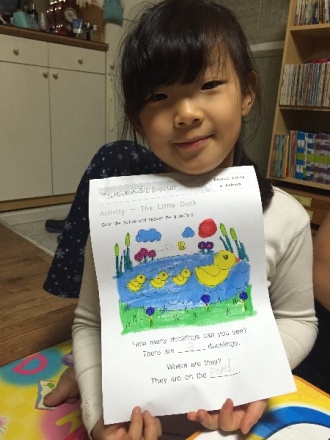 Activity - The Little Duck
Color the picture and answer the questions
How many ducklings can you see?
There are 3 ducklings.
Where are they?
They are on the pond